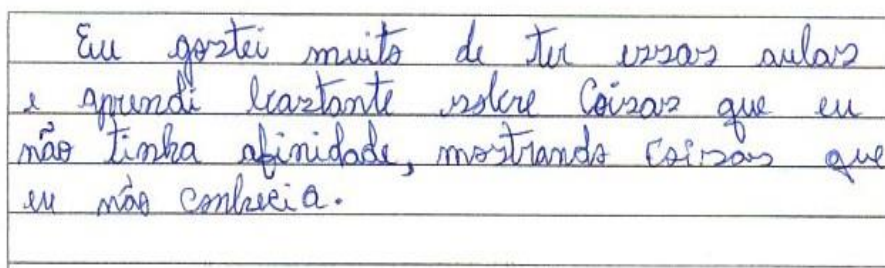 Eu gostei muito de ter essas aulas
e aprendi bastante sobre Coisas que eu
não tinha afinidade, mostrando Coisas que
eu não conhecia.